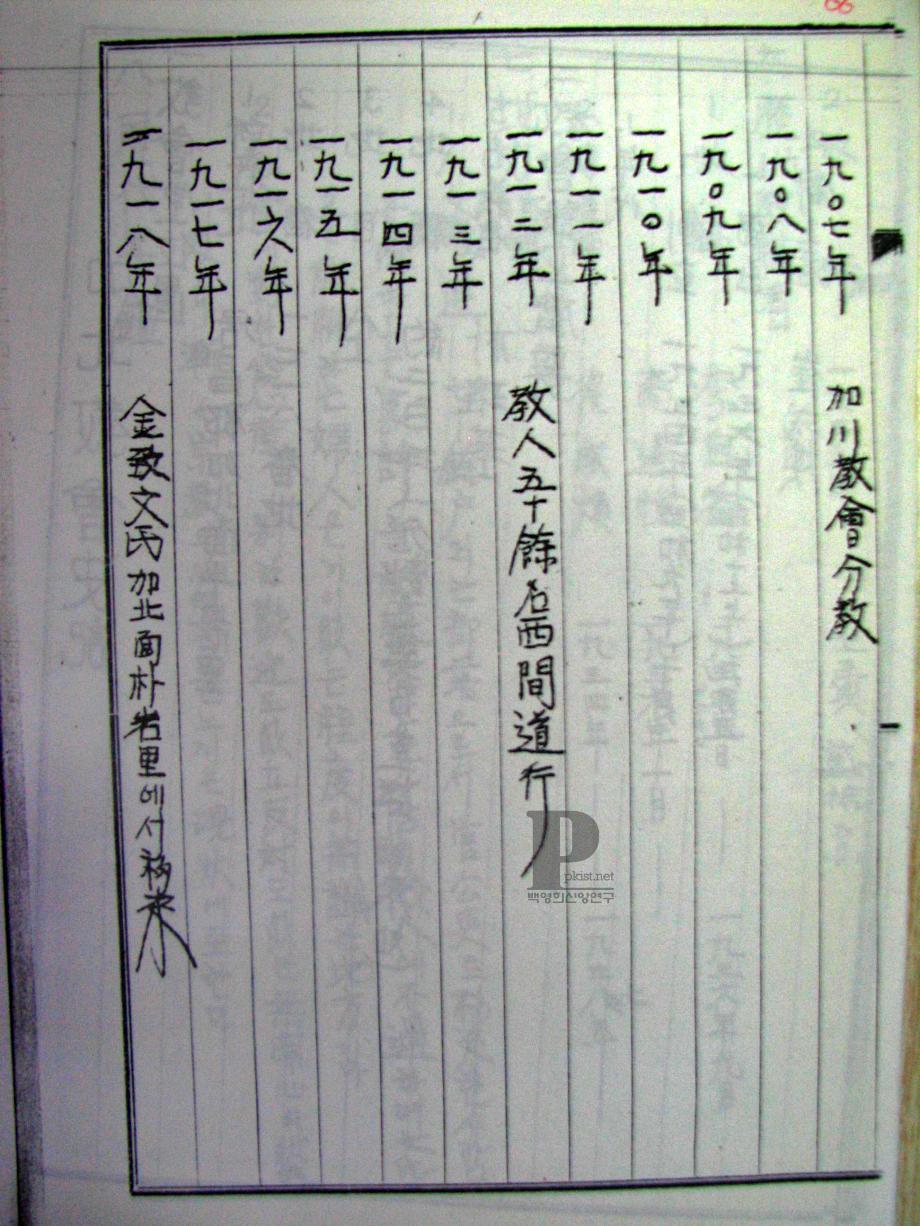 66
一九〇七年 加川教會分教
一九〇八年
一九〇九年
一九一〇年
一九一一年
一九一二年 教人五十餘名西間道行
一九一三年
一九一四年
一九一五年
一九一六年
一九一七年
一九一八年 金致文氏加北面朴岩里에서 移來
P
pkist.net
백영희신앙연구